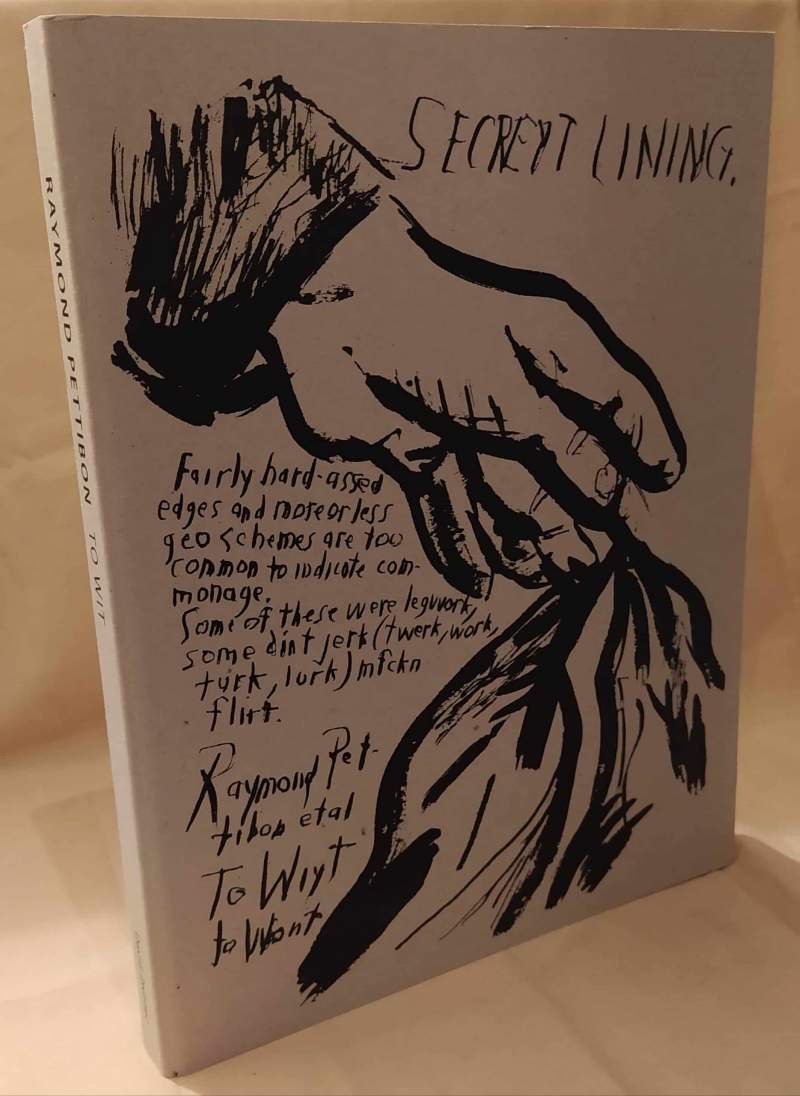 SECREYT LINING.
Fairly hard-assed
edges and more or less
geo schemes are too
common to indicate com-
monage.
Some of these were legwork,
some dint jerk (twerk, work,
turk, lurk) mfckn
flirt.
Raymond Pet-
tibon etal
To Wiyt
to Wont
RAYMOND PETTIBON TO WIT